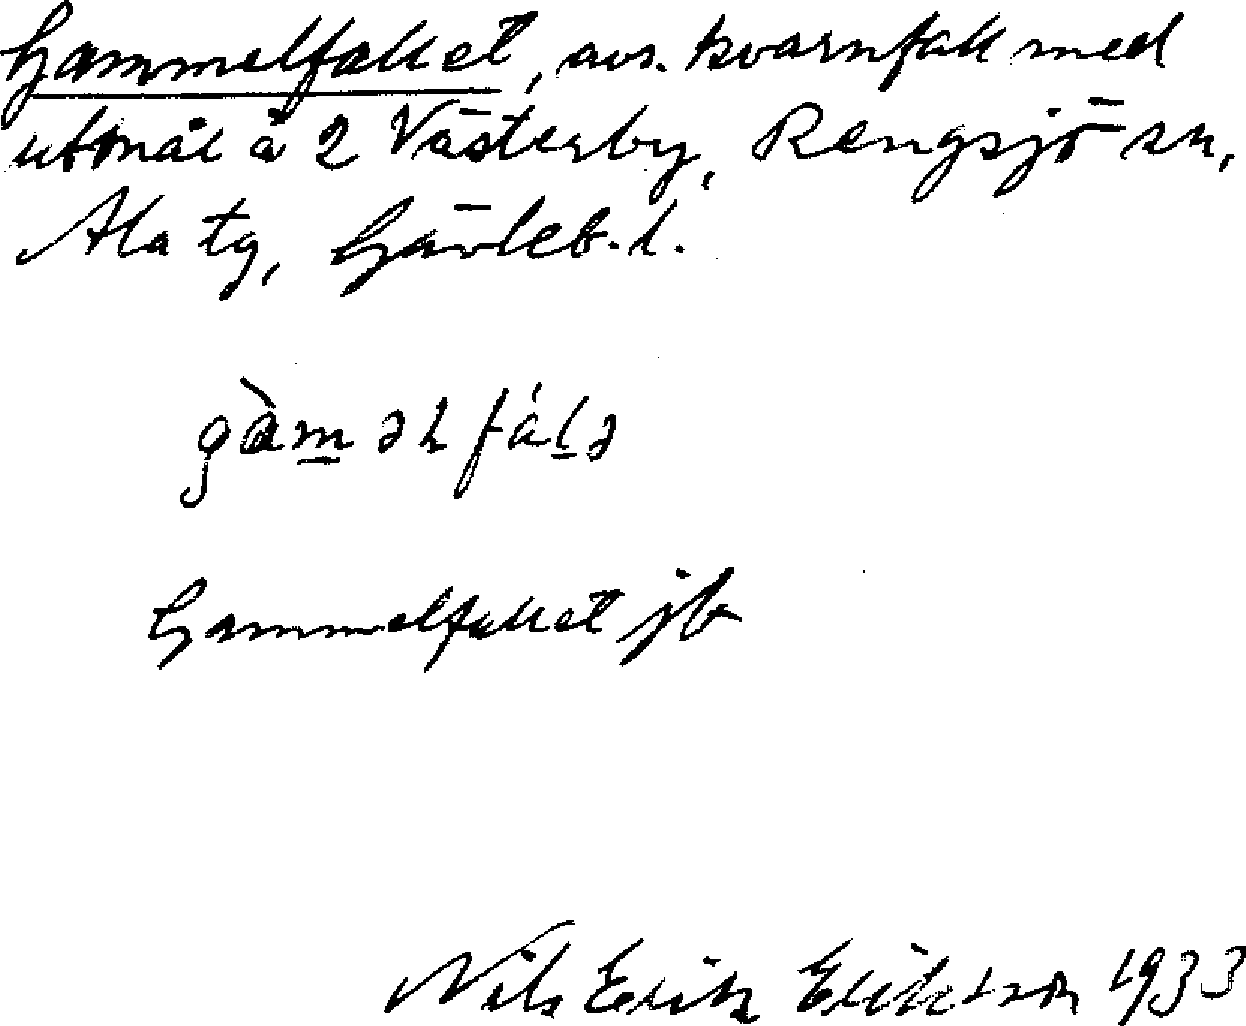 Gammelfallet, avs. kvarnfall med
utmål å 2 Västerby, Rengsjö sn,
Ala tg, Gävleb. l.
gàməlfáḷə
Gammelfallet jb
Nils Erik Eriksson 1933